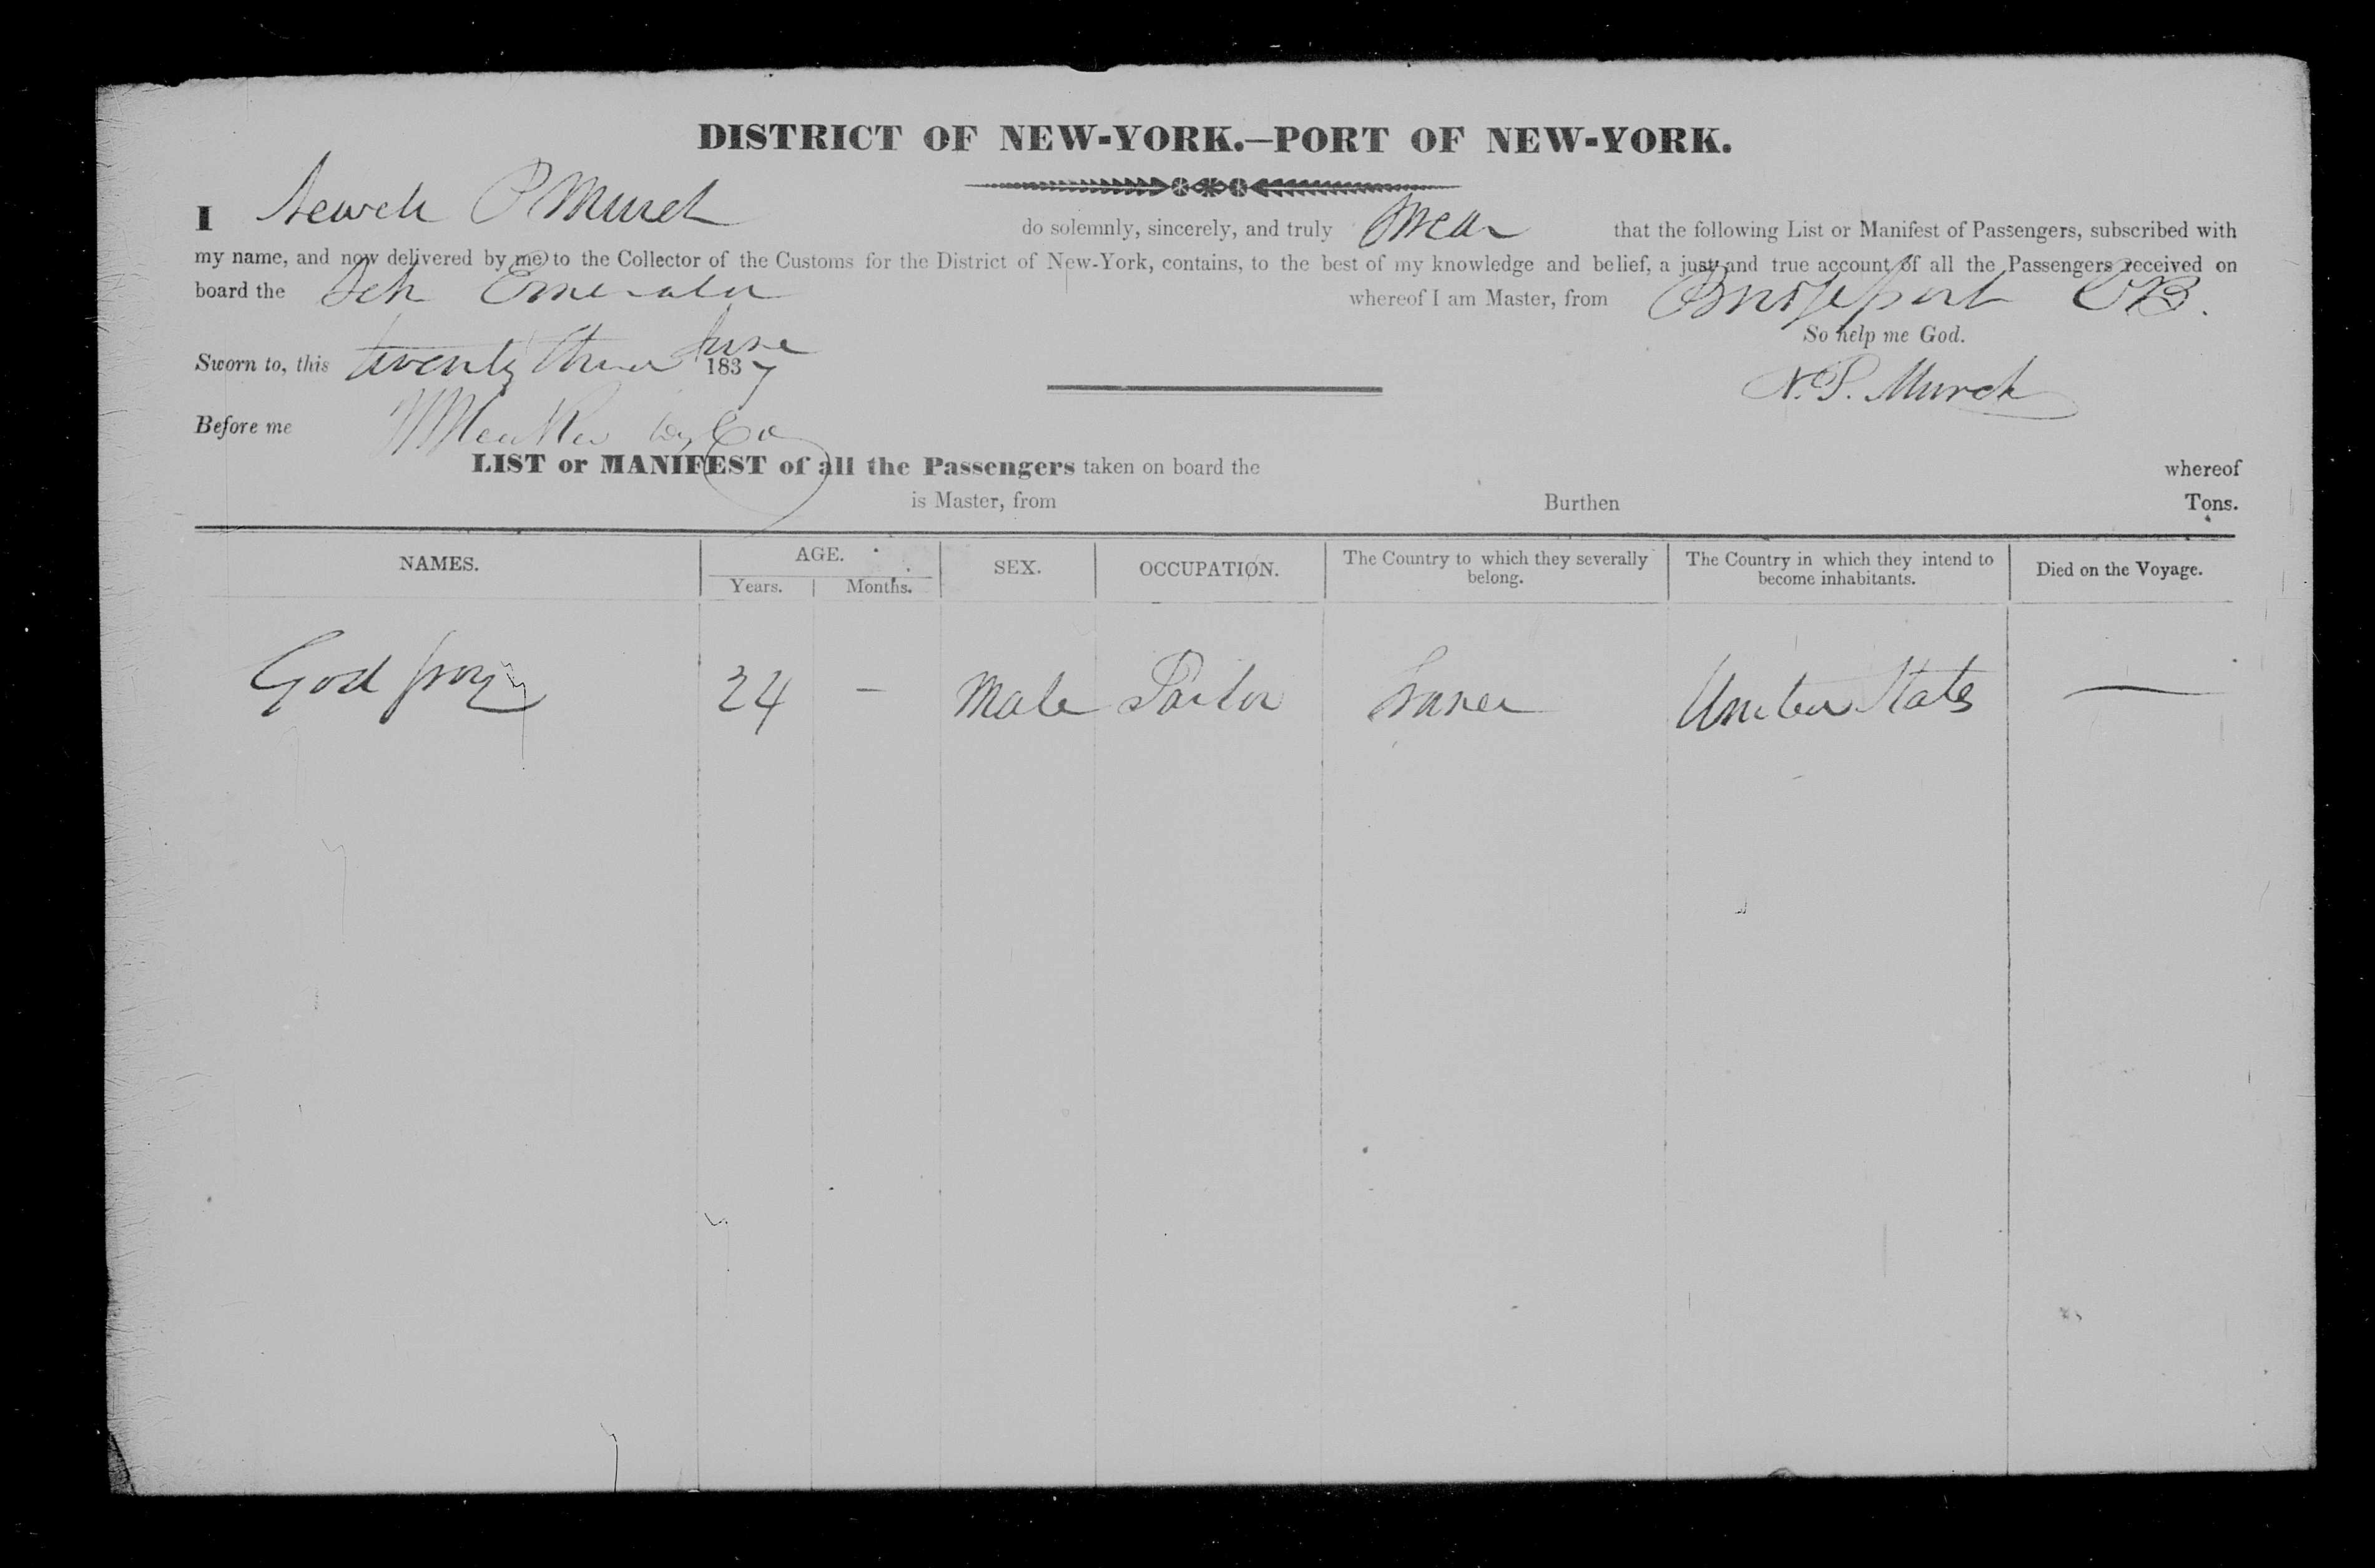 DISTRICT OF NEW-YORK.—PORT OF NEW-YORK.
I Newell P Murch do solemnly, sincerely, and truly Swear that the following List or Manifest of Passengers, subscribed with
my name, and now delivered by me to the Collector of the Customs for the District of New-York, contains, to the best of my knowledge and belief, a just and true account of all the Passengers received on
board the Sch Emerald whereof I am Master, from Bridgeport CB.
So help me God.
Sworn to, this twenty third June 1837
N. P. Murch
Before me
LIST or MANIFEST of all the Passengers taken on board the whereof
is Master, from Burthen Tons.
NAMES. AGE. Years. Months. SEX. OCCUPATION. The Country to which they severally belong. The Country in which they intend to become inhabitants. Died on the Voyage.
God froy 24 — Male Sailor France United States —